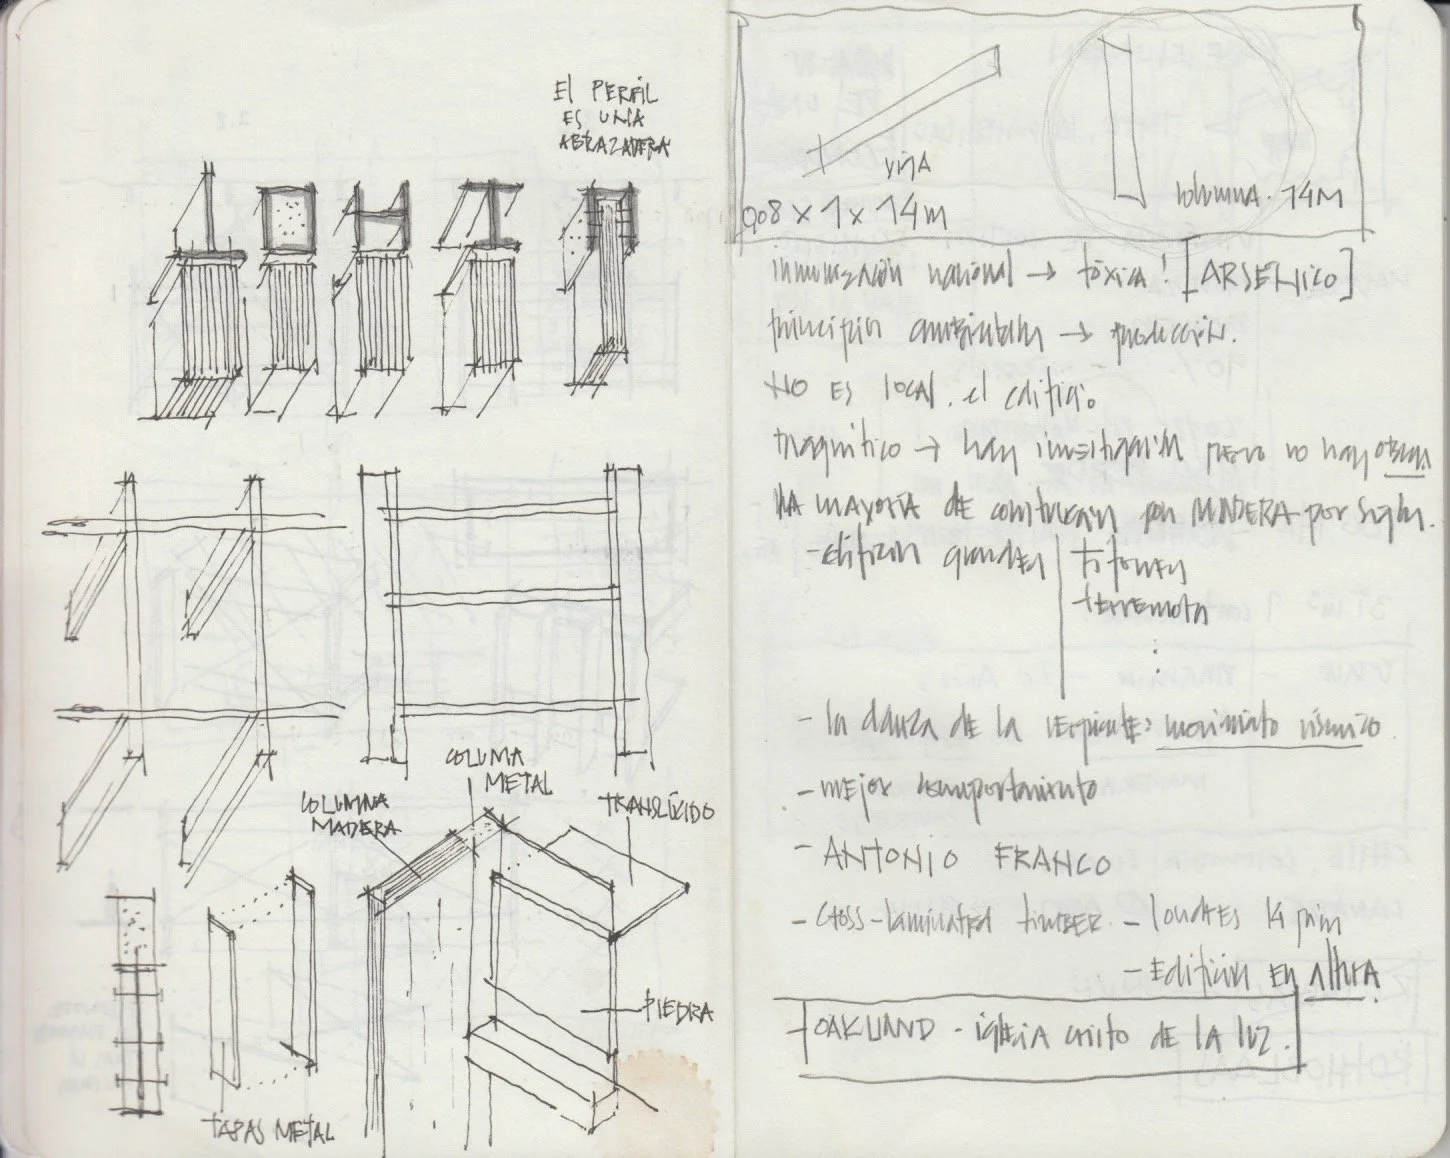 El PERFIL
ES UNA
ABRAZADERA
COLUMA
METAL
COLUMNA
MADERA
TRANSLÚCIDO
PIEDRA
TAPAS METAL
viga
columna. 14M
0,08 x 1 x 14m
inmunización nacional → tóxica! [ARSENICO]
principios ambientales → producción.
NO ES local. el edificio
magnífico → hay investigación pero no hay obras
LA MAYORIA DE construcción por MADERA por siglos.
- edificios grandes
tifones
terremotos
- la danza de la serpiente: movimiento sísmico.
- mejor comportamiento
- ANTONIO FRANCO
- cross-laminated timber. - londres 14 pisos
- Edificios en altura.
- OAKLAND - iglesia cristo de la luz.